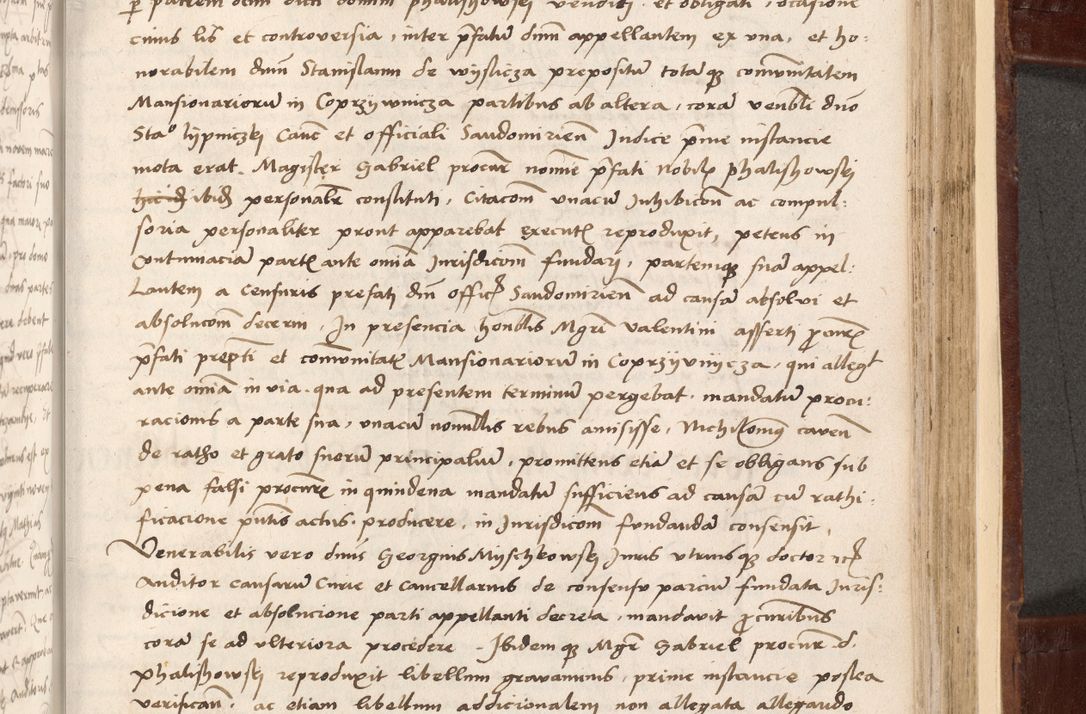 p patrem olim dicti domini Phalishowsej venditj et obligati, occasione
cuius lis et controversia, inter pfatū dnm appellantem ex una, et ho-
norabilem dnm Stanislaum de wyslicza prepositū totāq comunitatem
Mansionariorū in Coprzywnicza partibus ab altera, corā venbli dno
Stao lypniczkj Canc et officiali Sandomirien Judice prime instancie
mota erat. Magister Gabriel procur nomie pfati nobil Phalishowsej
ibid personalr constituti, Citacom unacū Inhibicom ac compul:
soria personaliter prout apparebat execut reproduxit, petens in
Contumaciā part ante omia Jurisdicom fundarj, partemq suā appel:
Lantem a Censuris prefati dni offic Sandomirien ad causā absolvi et
absolucom decerni, In presencia honblis Mgri Valentini asserti procur
pfati prepti et comunitat Mansionariorū in Coprzyvnycza, qui alleg
ante omia in via qua ad presentem terminū pergebat, mandatū procu:
racionis a parte sua, unacū nonnullis rebus amisisse, Nichilominq caven
de ratho et grato suorū principaliū, promittens etiā et se obligans sub
pena falsi procur in quindena mandatū sufficiens ad causā cū rathi:
ficacione pntis actus producere, in Jurisdicom fundandā consensit,
Venerabilis vero dnus Georgius Myschkowsej Juris utriusq doctor etc
Auditor causarū Curie et Cancellarius de consensu parciū fundata Juris:
dicione et absolucione parti appellanti decreta, mandavit procuribus
corā se ad ulteriora procedere. Ibidemq Mgr Gabriel procur d.
Phalishowsej reproduxit libellum gravaminis, prime instancie postea
verifican, ac etiam libellum addicionalem non allegata allegando